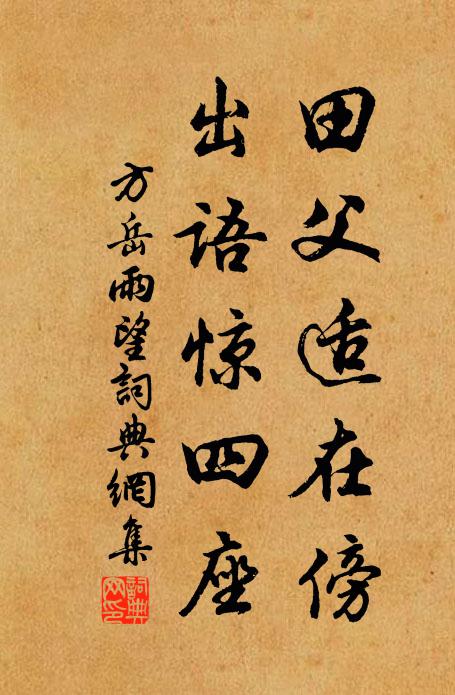 田父适在傍
出语惊四座
方岳雨望詞典網集
詞典
网印